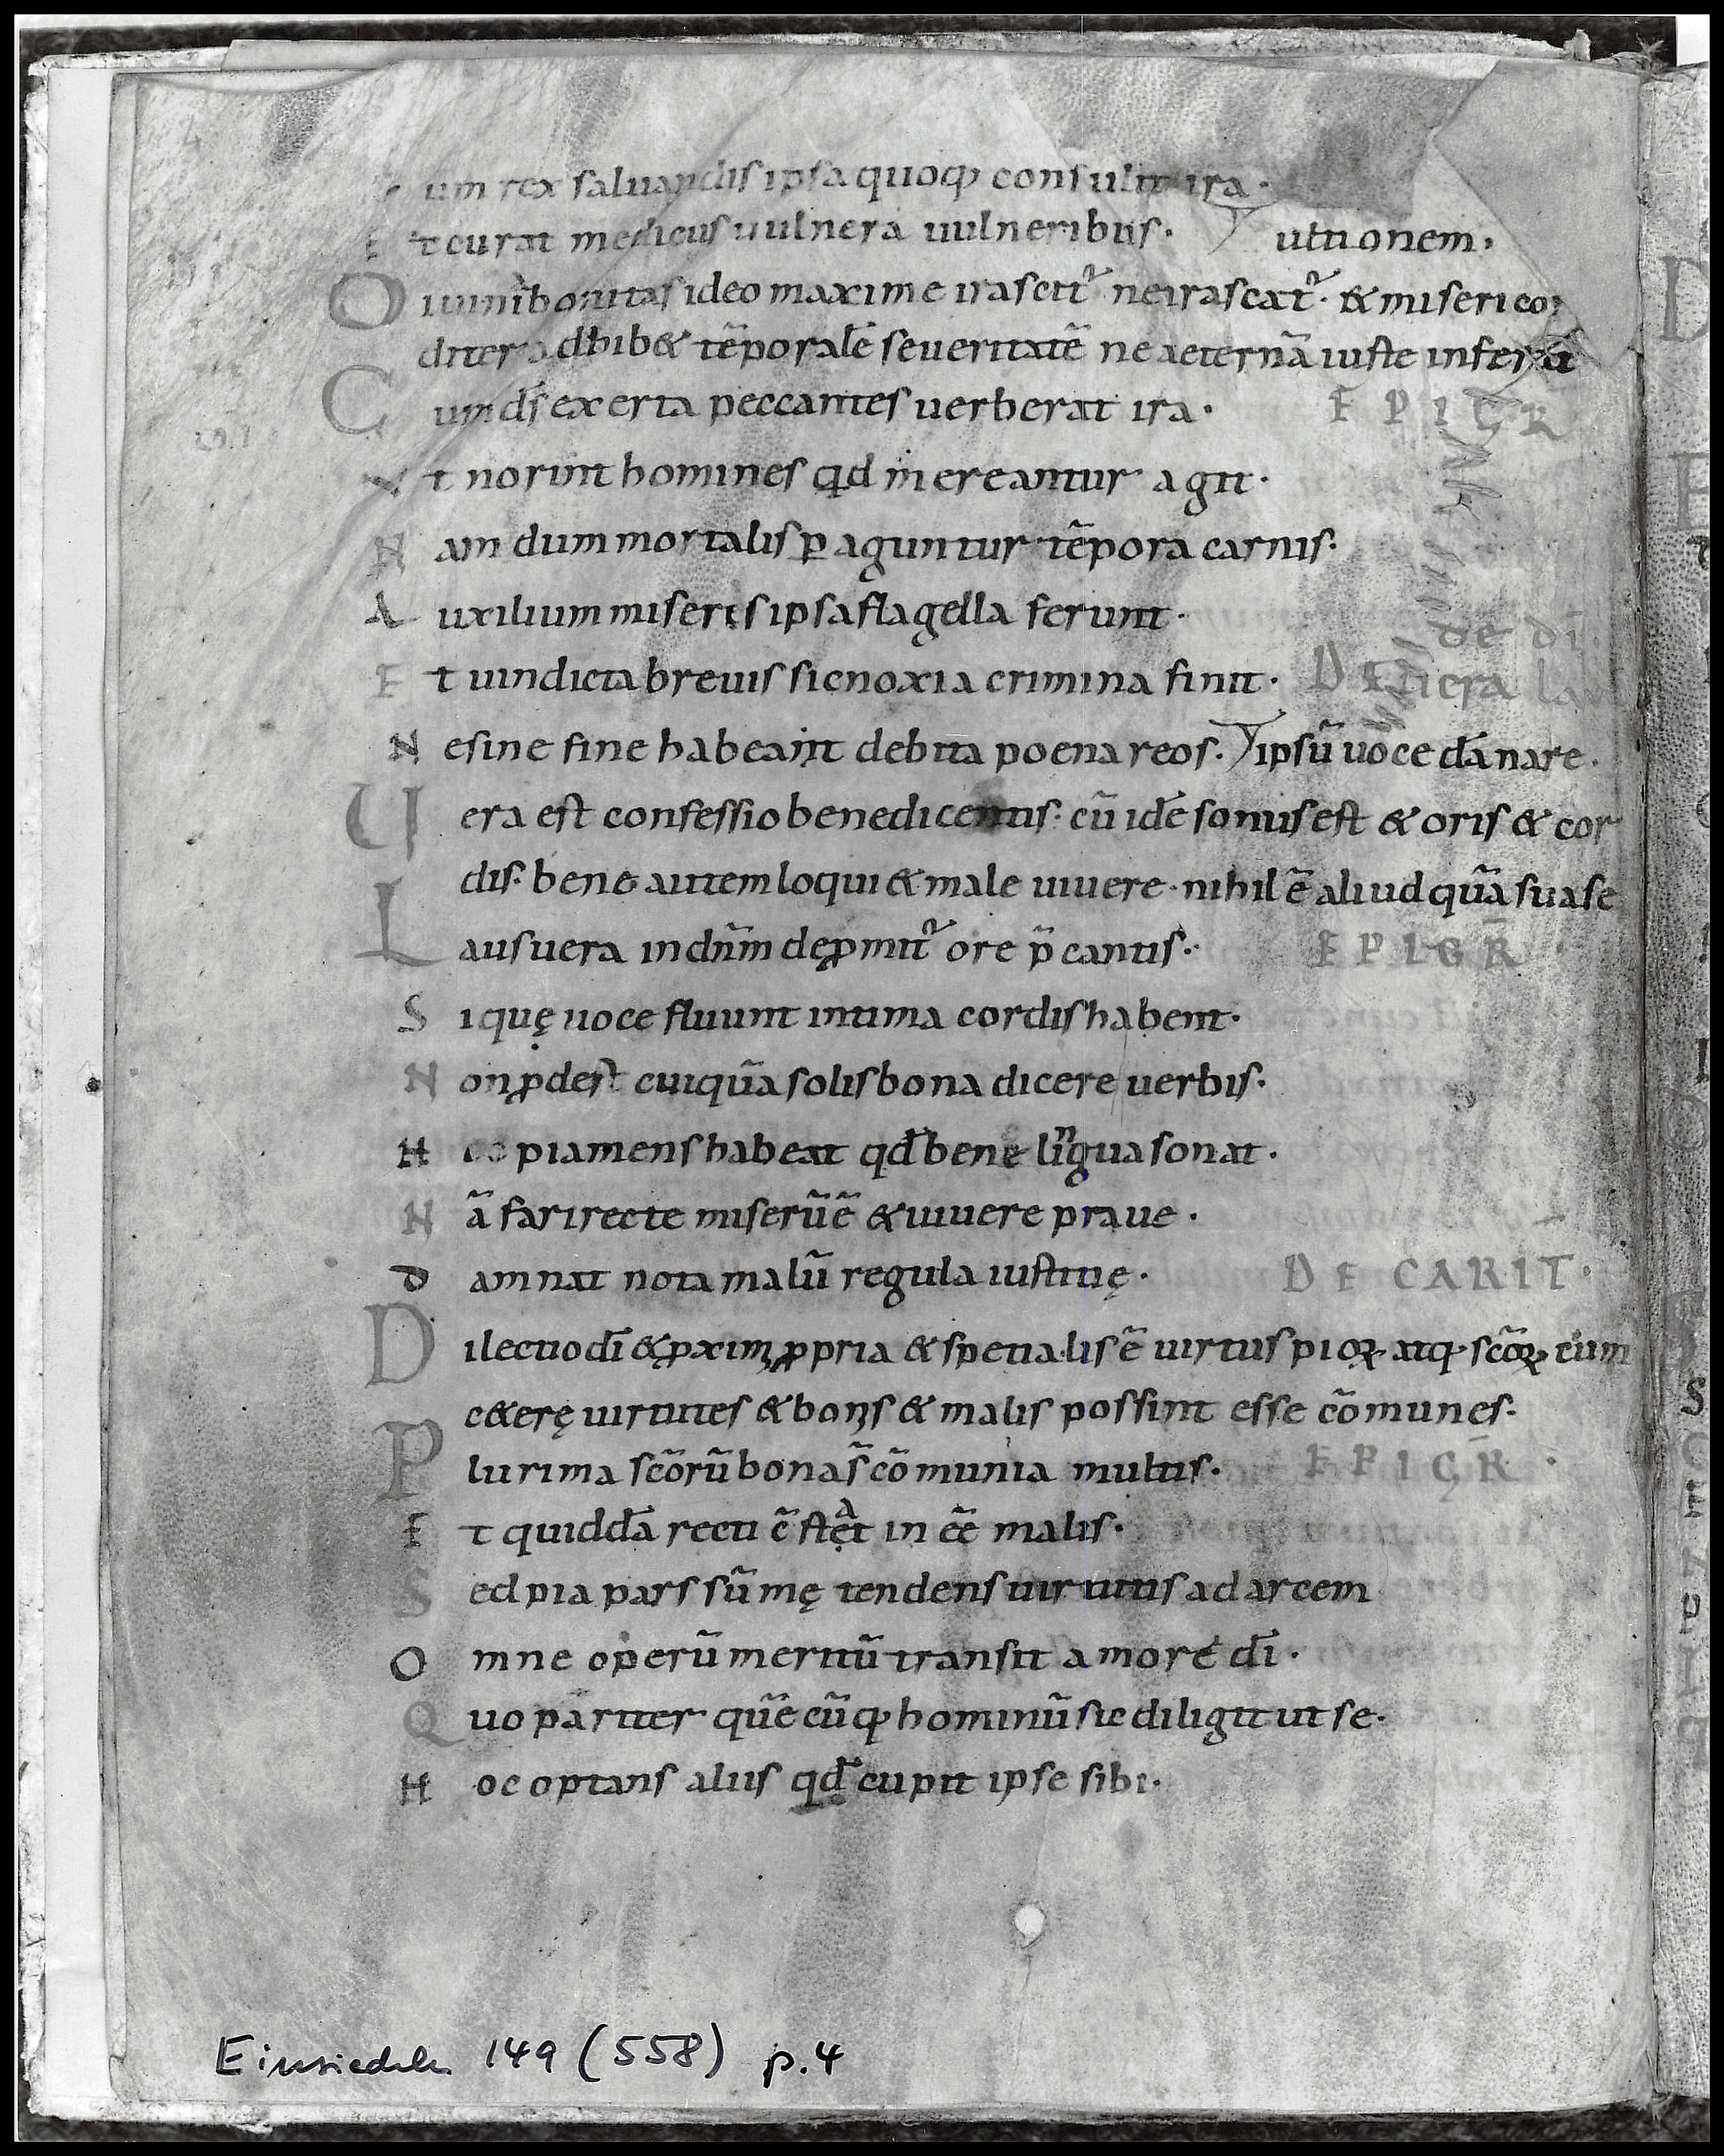 um rex saluandis ipsa quoq; consulit ira·
E t curat medicus uulnera uulneribus· ultionem·
D iuini bonitas ideo maxime irascit᷑ ne irascat᷑· & misericor
diter adhib& tēporalē seueritatē ne aeternā iuste inferat
C um ds̄ exerta peccantes uerberat ira· EPIGR
V t norint homines qd mereantur agit·
N am dum mortalis ꝑaguntur tēpora carnis·
A uxilium miseris ipsa flagella ferunt·
de dī
E t uindicta breuis sic noxia crimina finit· DE uera lau
N e sine fine habeant debita poena reos· ipsū uoce dānare·
U era est confessio benedicentis· cū idē sonus est & oris & cor
dis· bene autem loqui & male uiuere· nihil ē aliud quā sua se
L aus uera in dn̄m deꝓmit᷑ ore p̄cantis· EPIGR̄·
S i quę uoce fluunt intima cordis habent·
N on ꝓdest cuiquā solis bona dicere uerbis·
H oc pia mens habeat qd̄ bene lingua sonat·
N ā fari recte miserū ē & uiuere praue·
D amnat nota malū regula iustitię·
DE CARIT·
D ilectio dī & ꝓximi ꝓpria & spetialis ē uirtus pioꝝ atq; sc̄oꝝ cum
c&erę uirtutes & bonis & malis possint esse cōmunes·
P lurima sc̄orū bona s̄ cōmunia multis· EPIGR̄·
E t quiddā recti c̄stat in eē malis·
S ed pia pars sūmę tendens uirtutis ad arcem
O mne operū meritū transit amore dī·
Q uo pariter quē cūq; hominū sic diligit ut se·
H oc optans aliis qd̄ cupit ipse sibi·
Einsiedeln 149 (558) p.4